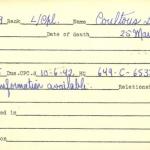 Rank L/Cpl. Coultous
Date of death 25 Ma
Dms.OPC.H. 10-6-42. H. 649-C-653
information available. Relations
ed in